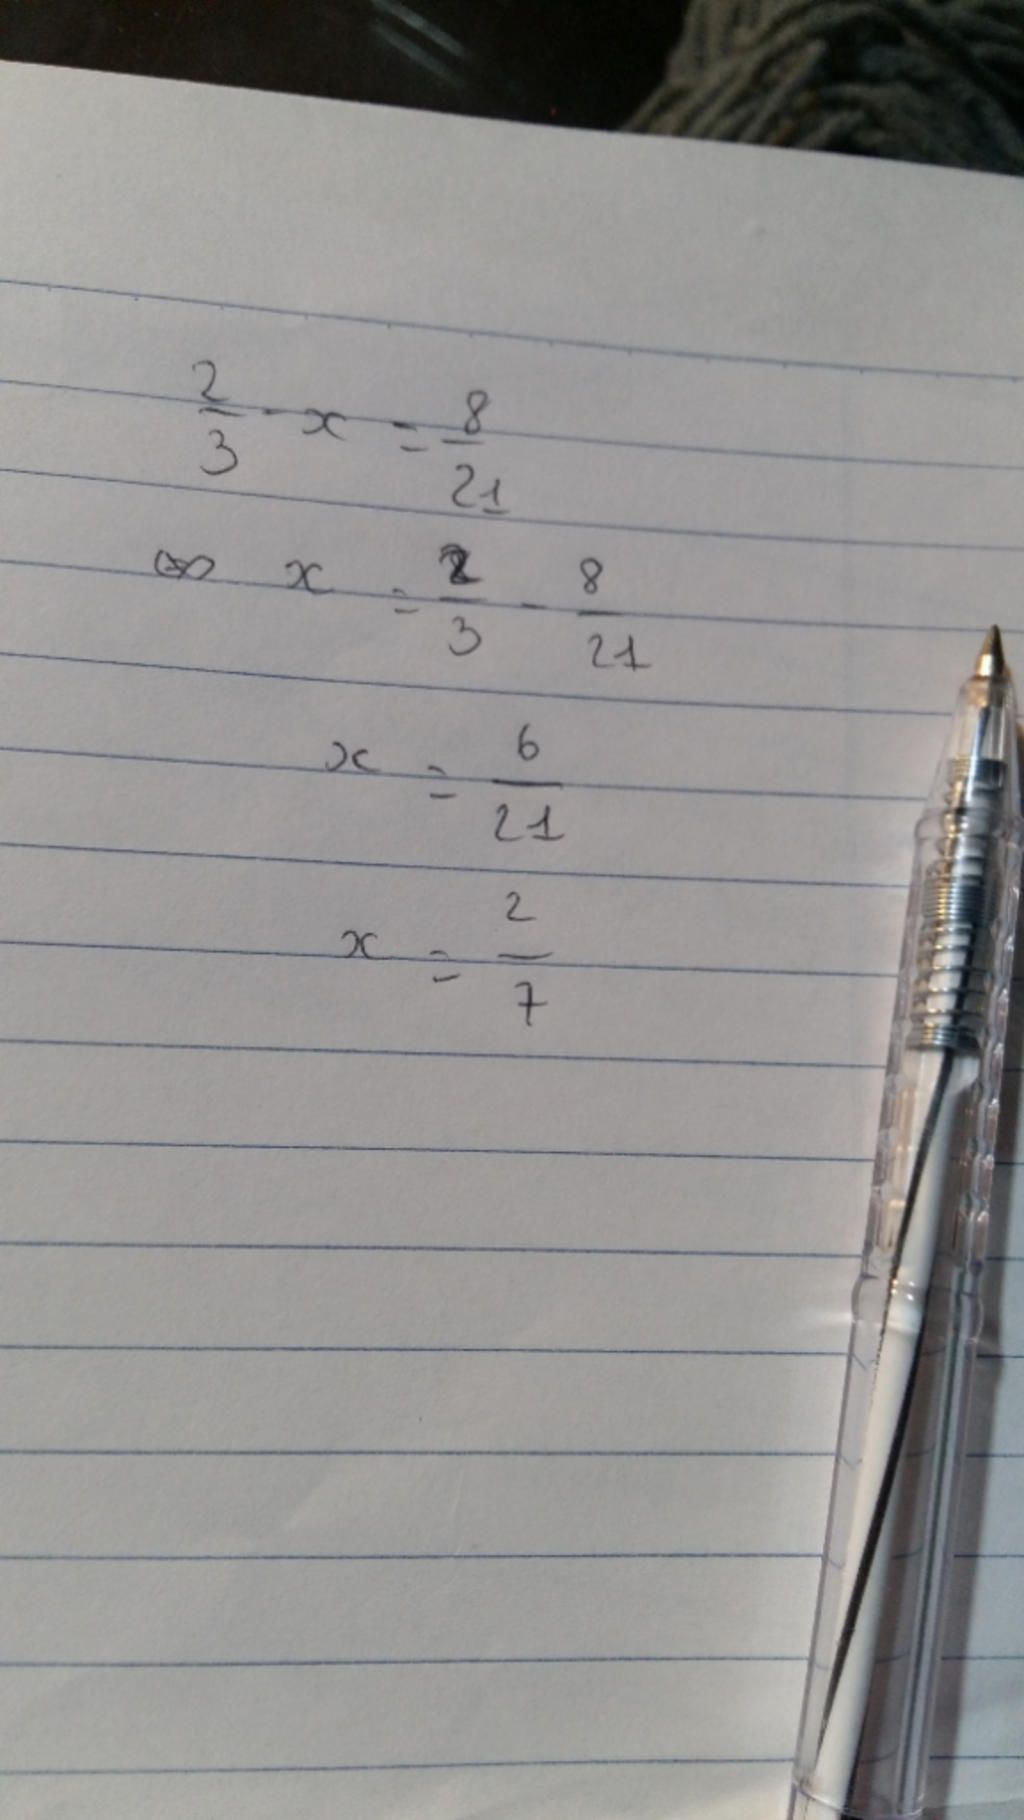 2/3 - x = 8/21
∞ x = 2/3 - 8/21
x = 6/21
x = 2/7